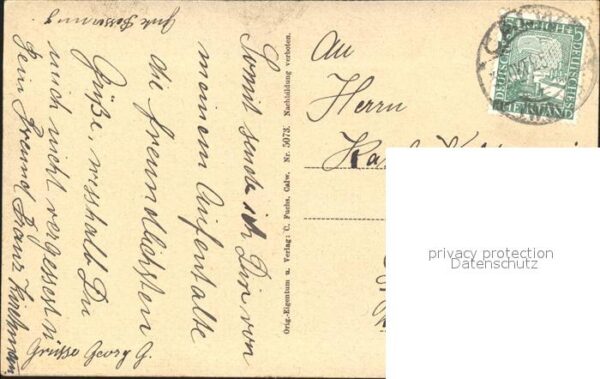 Gute Besserung
Somit sende ich Dir von
meinem Aufenthalte
die freundlichsten
Grüße, weshalb Du
mich nicht vergessest
Dein Freund Franz
Grüsse Georg G.
Orig.-Eigentum u. Verlag: C. Fuchs, Calw. Nr. 5073. Nachbildung verboten.
An
Herrn
Karl
DEUTSCHES
privacy protection
Datenschutz